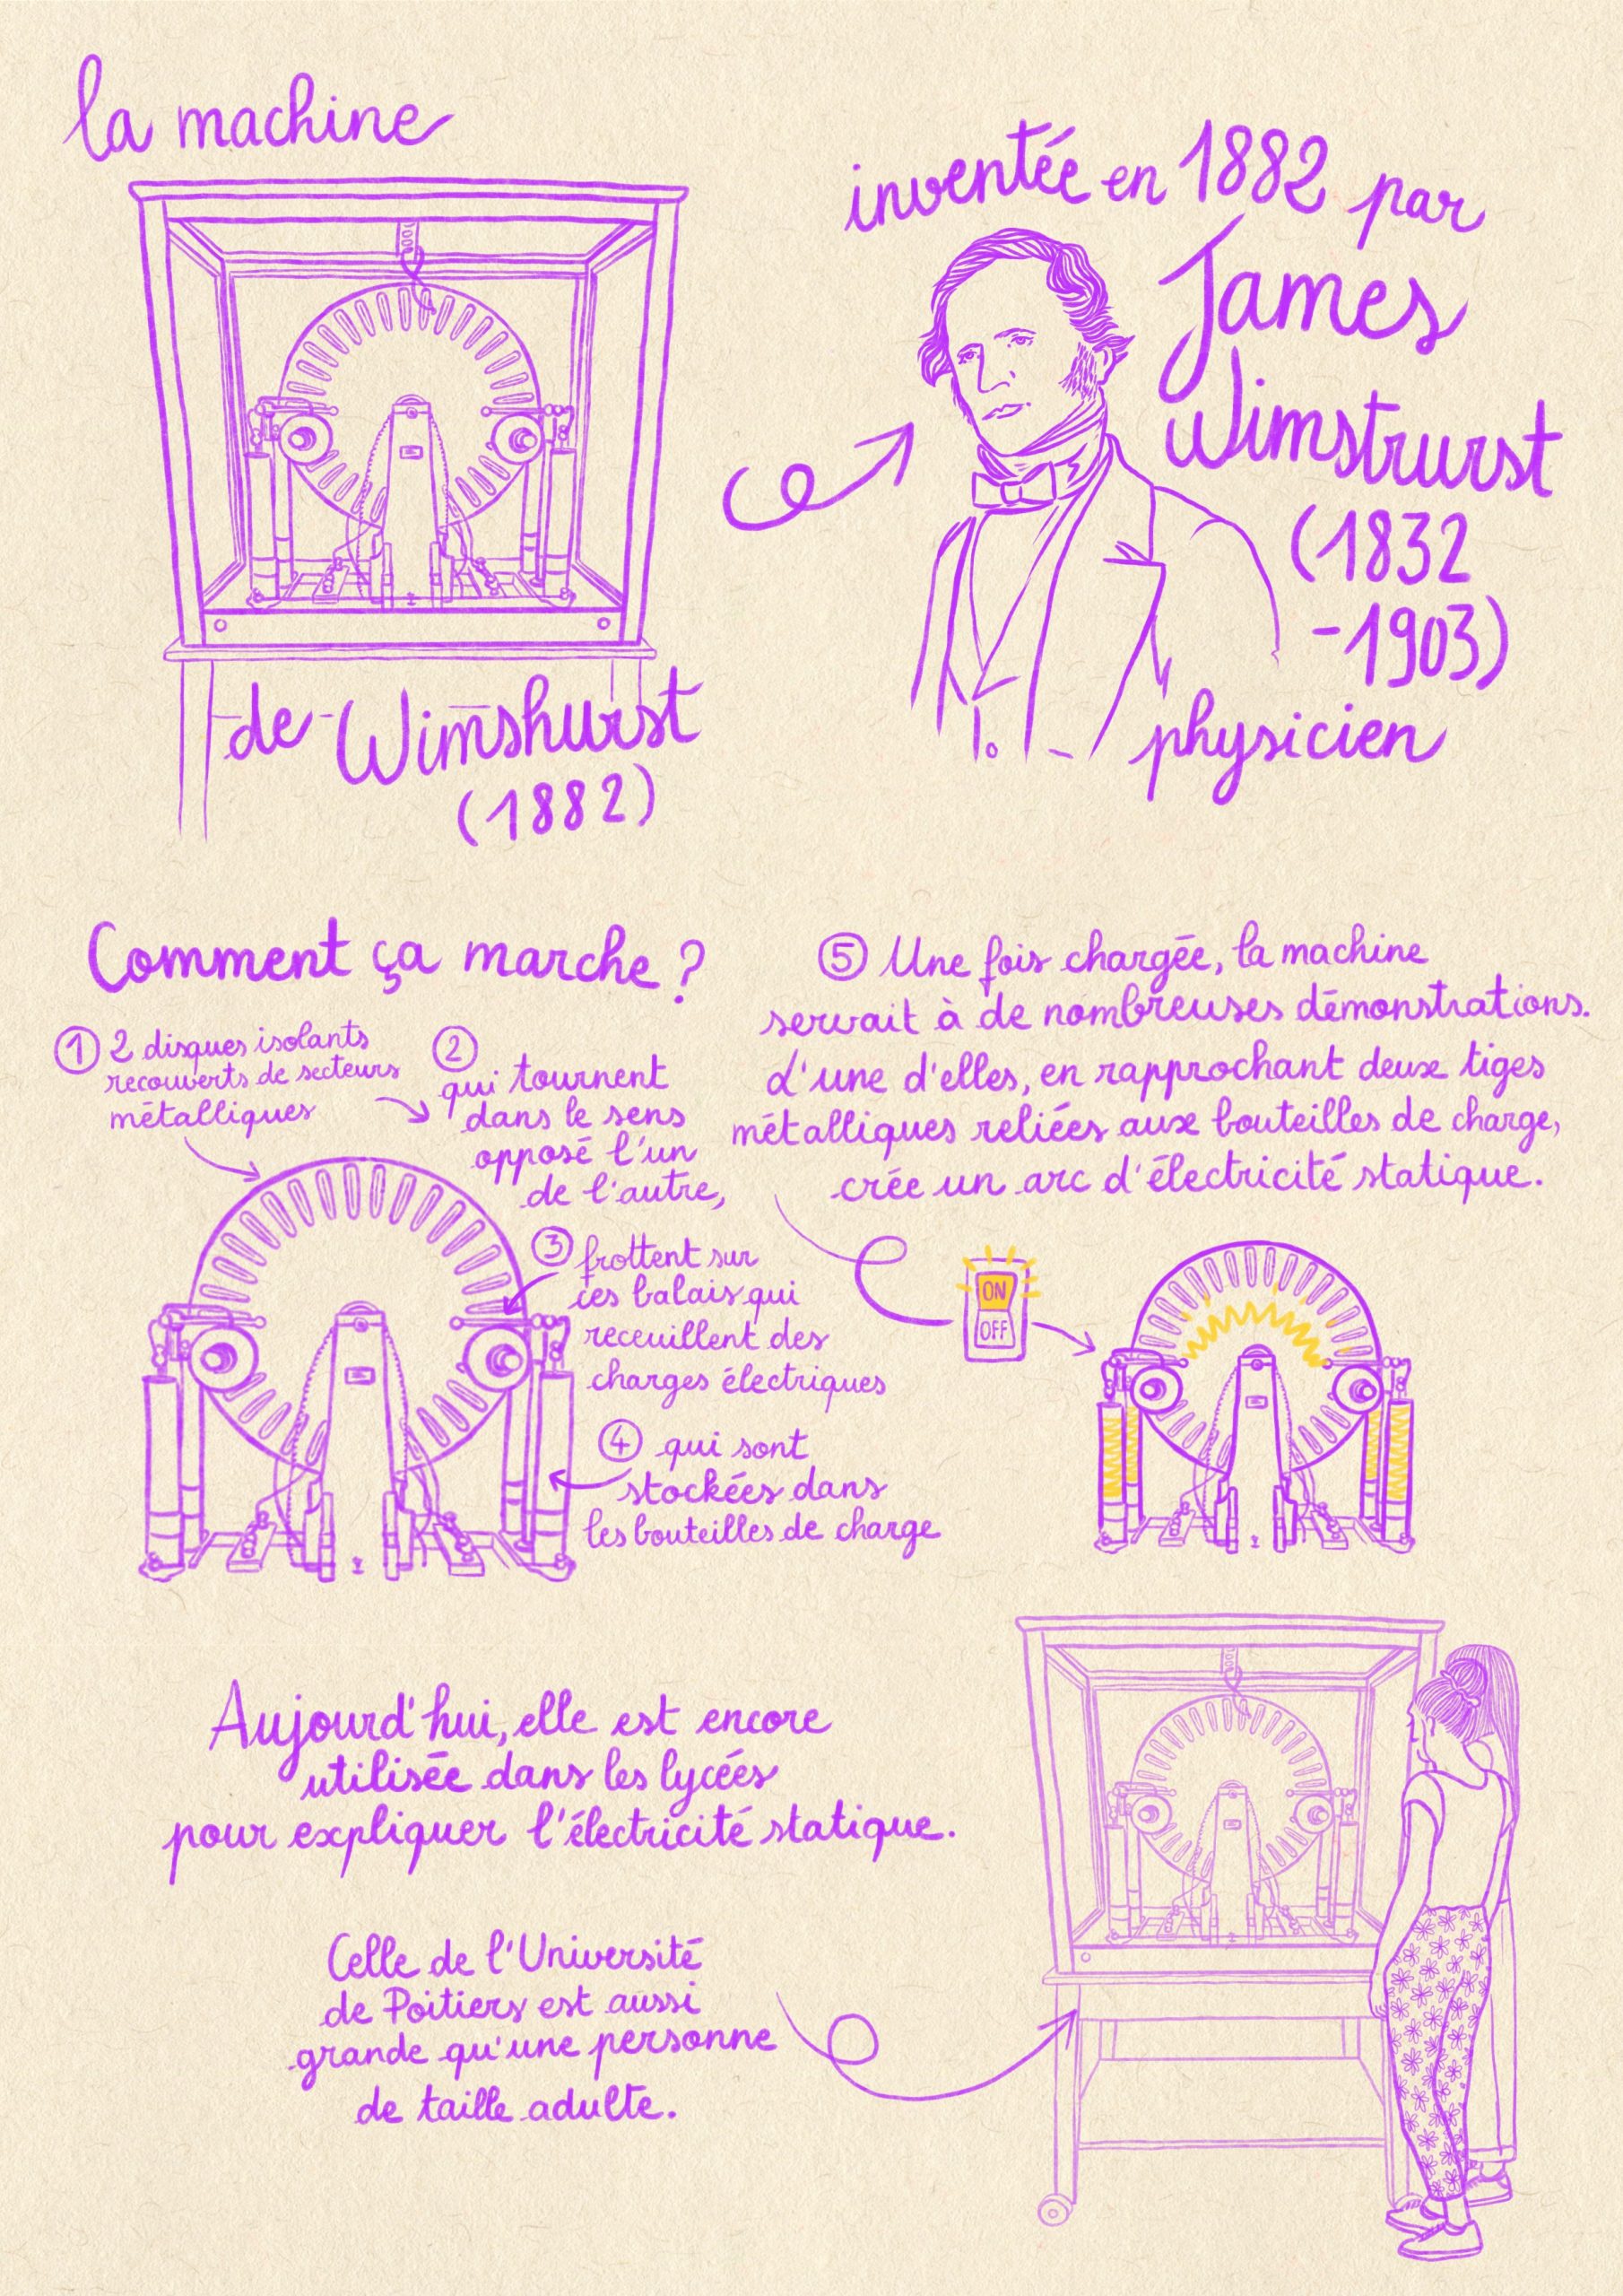 la machine
de Wimshurst
(1882)
inventée en 1882 par
James
Wimstrurst
(1832
-1903)
physicien
Comment ça marche ?
① 2 disques isolants
recouverts de secteurs
métalliques
②
qui tournent
dans le sens
opposé l'un
de l'autre,
③ frottent sur
ces balais qui
receuillent des
charges électriques
④ qui sont
stockées dans
les bouteilles de charge
⑤ Une fois chargée, la machine
servait à de nombreuses démonstrations.
d'une d'elles, en rapprochant deux tiges
métalliques reliées aux bouteilles de charge,
crée un arc d'électricité statique.
ON
OFF
Aujourd'hui, elle est encore
utilisée dans les lycées
pour expliquer l'électricité statique.
Celle de l'Université
de Poitiers est aussi
grande qu'une personne
de taille adulte.